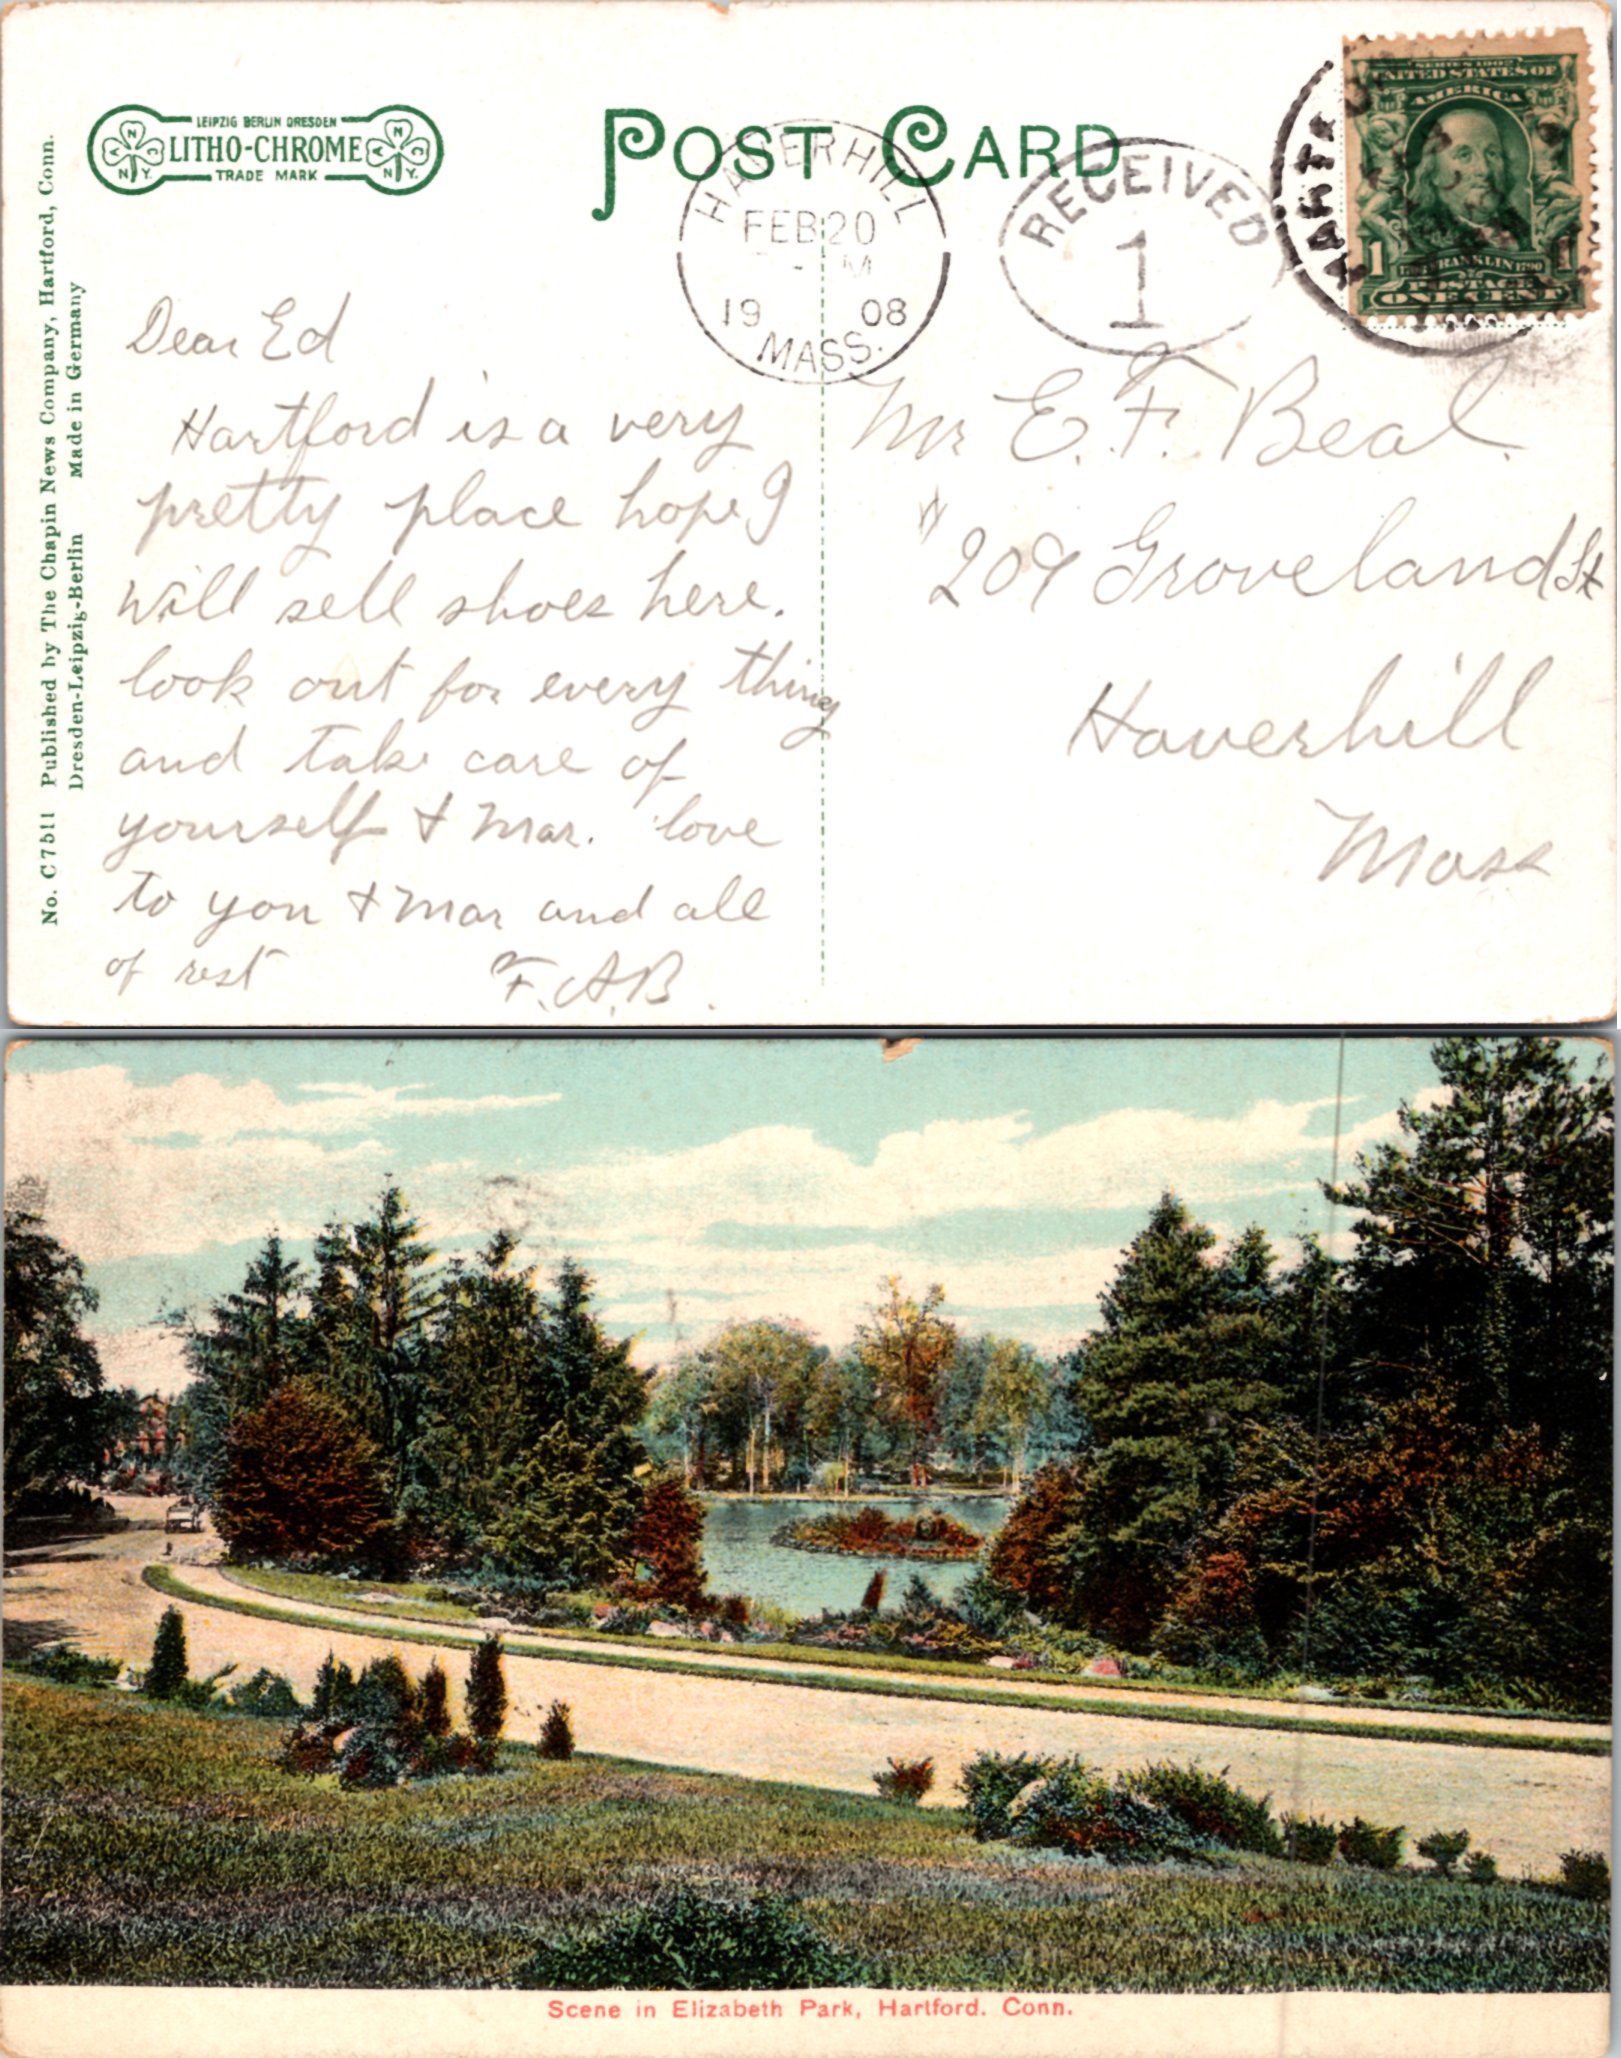 LEIPZIG BERLIN DRESDEN
LITHO-CHROME
TRADE MARK
N
N Y.
N
N Y.
POST CARD
HAVERHILL
FEB 20
M
19 08
MASS.
RECEIVED
1
HARTF
SERIES 1902
UNITED STATES OF
AMERICA
1 1
FRANKLIN 1790
POSTAGE
ONE CENT
No. C7511 Published by The Chapin News Company, Hartford, Conn.
Dresden-Leipzig-Berlin Made in Germany
Dear Ed
Hartford is a very
pretty place hope I
will sell shoes here.
look out for every thing
and take care of
yourself & Mar. love
to you & Mar and all
of rest F.A.B.
Mr E. F. Beal.
" 209 Groveland St
Haverhill
Mass
Scene in Elizabeth Park, Hartford. Conn.